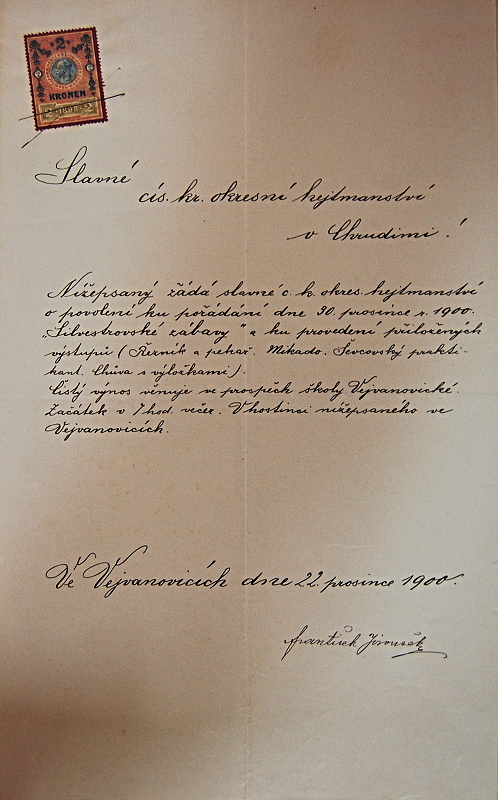 2
2 2
KRONEN
2 1898 2
Slavné
cís. kr. okresní hejtmanství
v Chrudimi!
Nížepsaný žádá slavné c. k. okres. hejtmanství
o povolení ku pořádání dne 30. prosince r. 1900.
„Silvestrovské zábavy" a ku provedení přiložených
výstupů (Řezník a pekař. Mikado. Ševcovský prakti-
kant. Chůva s výložkami).
Čistý výnos venuje ve prospěch školy Vejvanovické.
Začátek v 7 hod. večer. V hostinci nížepsaného ve
Vejvanovicích.
Ve Vejvanovicích dne 22. prosince 1900.
František Jirousek